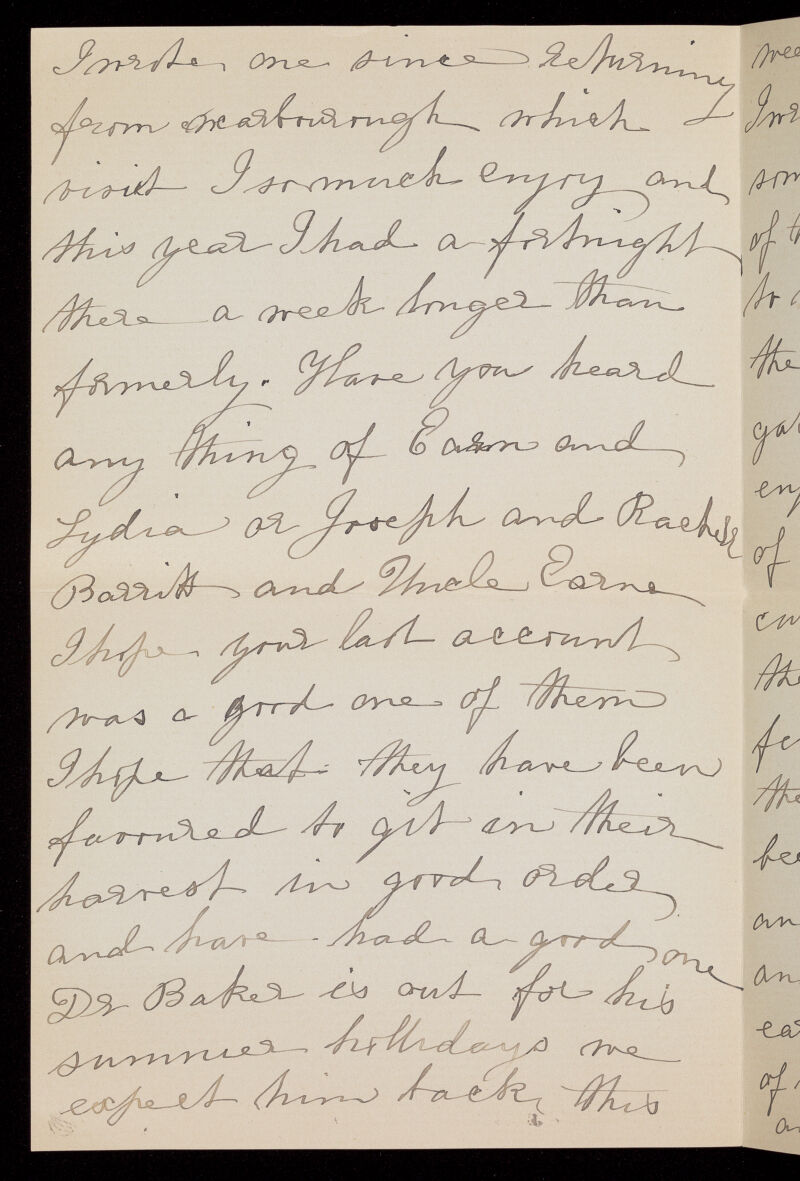 I wrote one since returning
from scarbourough which
visit I so much enjoy and
this year I had a fortnight
there a week longer than
formerly. Have you heard
any thing of and
Lydia or Joseph and Rachel
Barritt and Uncle Earne
I hope your last account
was a good one of them
I hope that they have been
favoured to git in their
harvest in good order
and have had a good one
Dr Baker is out for his
summer hollidays we
expect him back this
wee
I wr
som
of t
to
the
gat
enj
of
the
fe
the
bee
an
an
ear
of